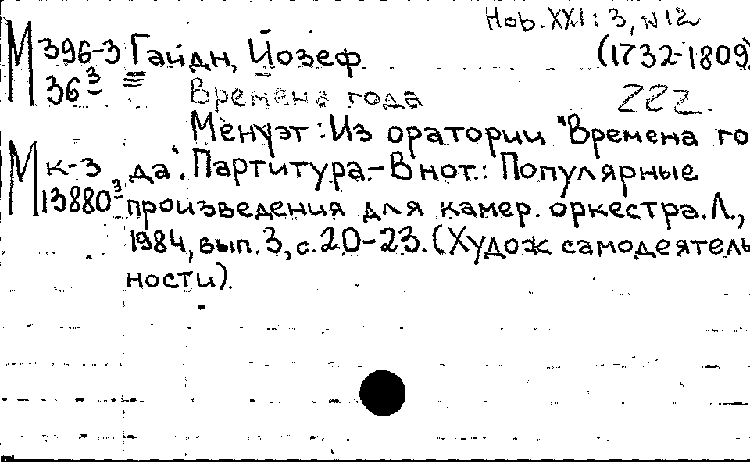 Hob. XXI: 3, N12
М 396-3 Гайдн, Йозеф (1732-1809)
36³ Времена года 222.
Менуэт: Из оратории "Времена го
М к-3 да". Партитура.- В нот.: Популярные
13880³ произведения для камер. оркестра. Л.,
1984, вып. 3, с. 20-23. (Худож самодеятель
ности)